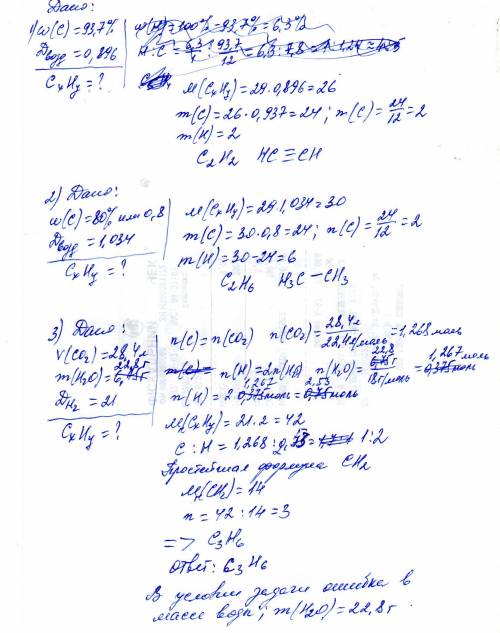 Дано:
1) w(C) = 93,7%
Dвозд = 0,896
CxHy = ?
w(H) = 100% - 93,7% = 6,3%
M(CxHy) = 29·0,896 = 26
m(C) = 26·0,937 = 24; m(C) = 24/12 = 2
m(H) = 2
C2H2 HC≡CH
2) Дано:
w(C) = 80% или 0,8
Dвозд = 1,034
CxHy = ?
M(CxHy) = 29·1,034 = 30
m(C) = 30·0,8 = 24; n(C) = 24/12 = 2
m(H) = 30-24 = 6
C2H6 H3C—CH3
3) Дано:
V(CO2) = 28,4л
m(H2O) = 22,8г
DH2 = 21
CxHy = ?
n(C) = n(CO2) n(CO2) = 28,4л/22,4л/моль = 1,268 моль
n(H) = 2n(H2O) n(H2O) = 22,8г/18г/моль = 1,267 моль
n(H) = 2·1,267 моль = 2,53 моль
M(CxHy) = 21·2 = 42
C : H = 1,268 : 2,53 = 1:2
Простейшая формула CH2
M(CH2) = 14
n = 42 : 14 = 3
=> C3H6
ответ: C3H6
В условии задачи ошибка в
массе воды; m(H2O) = 22,8г.